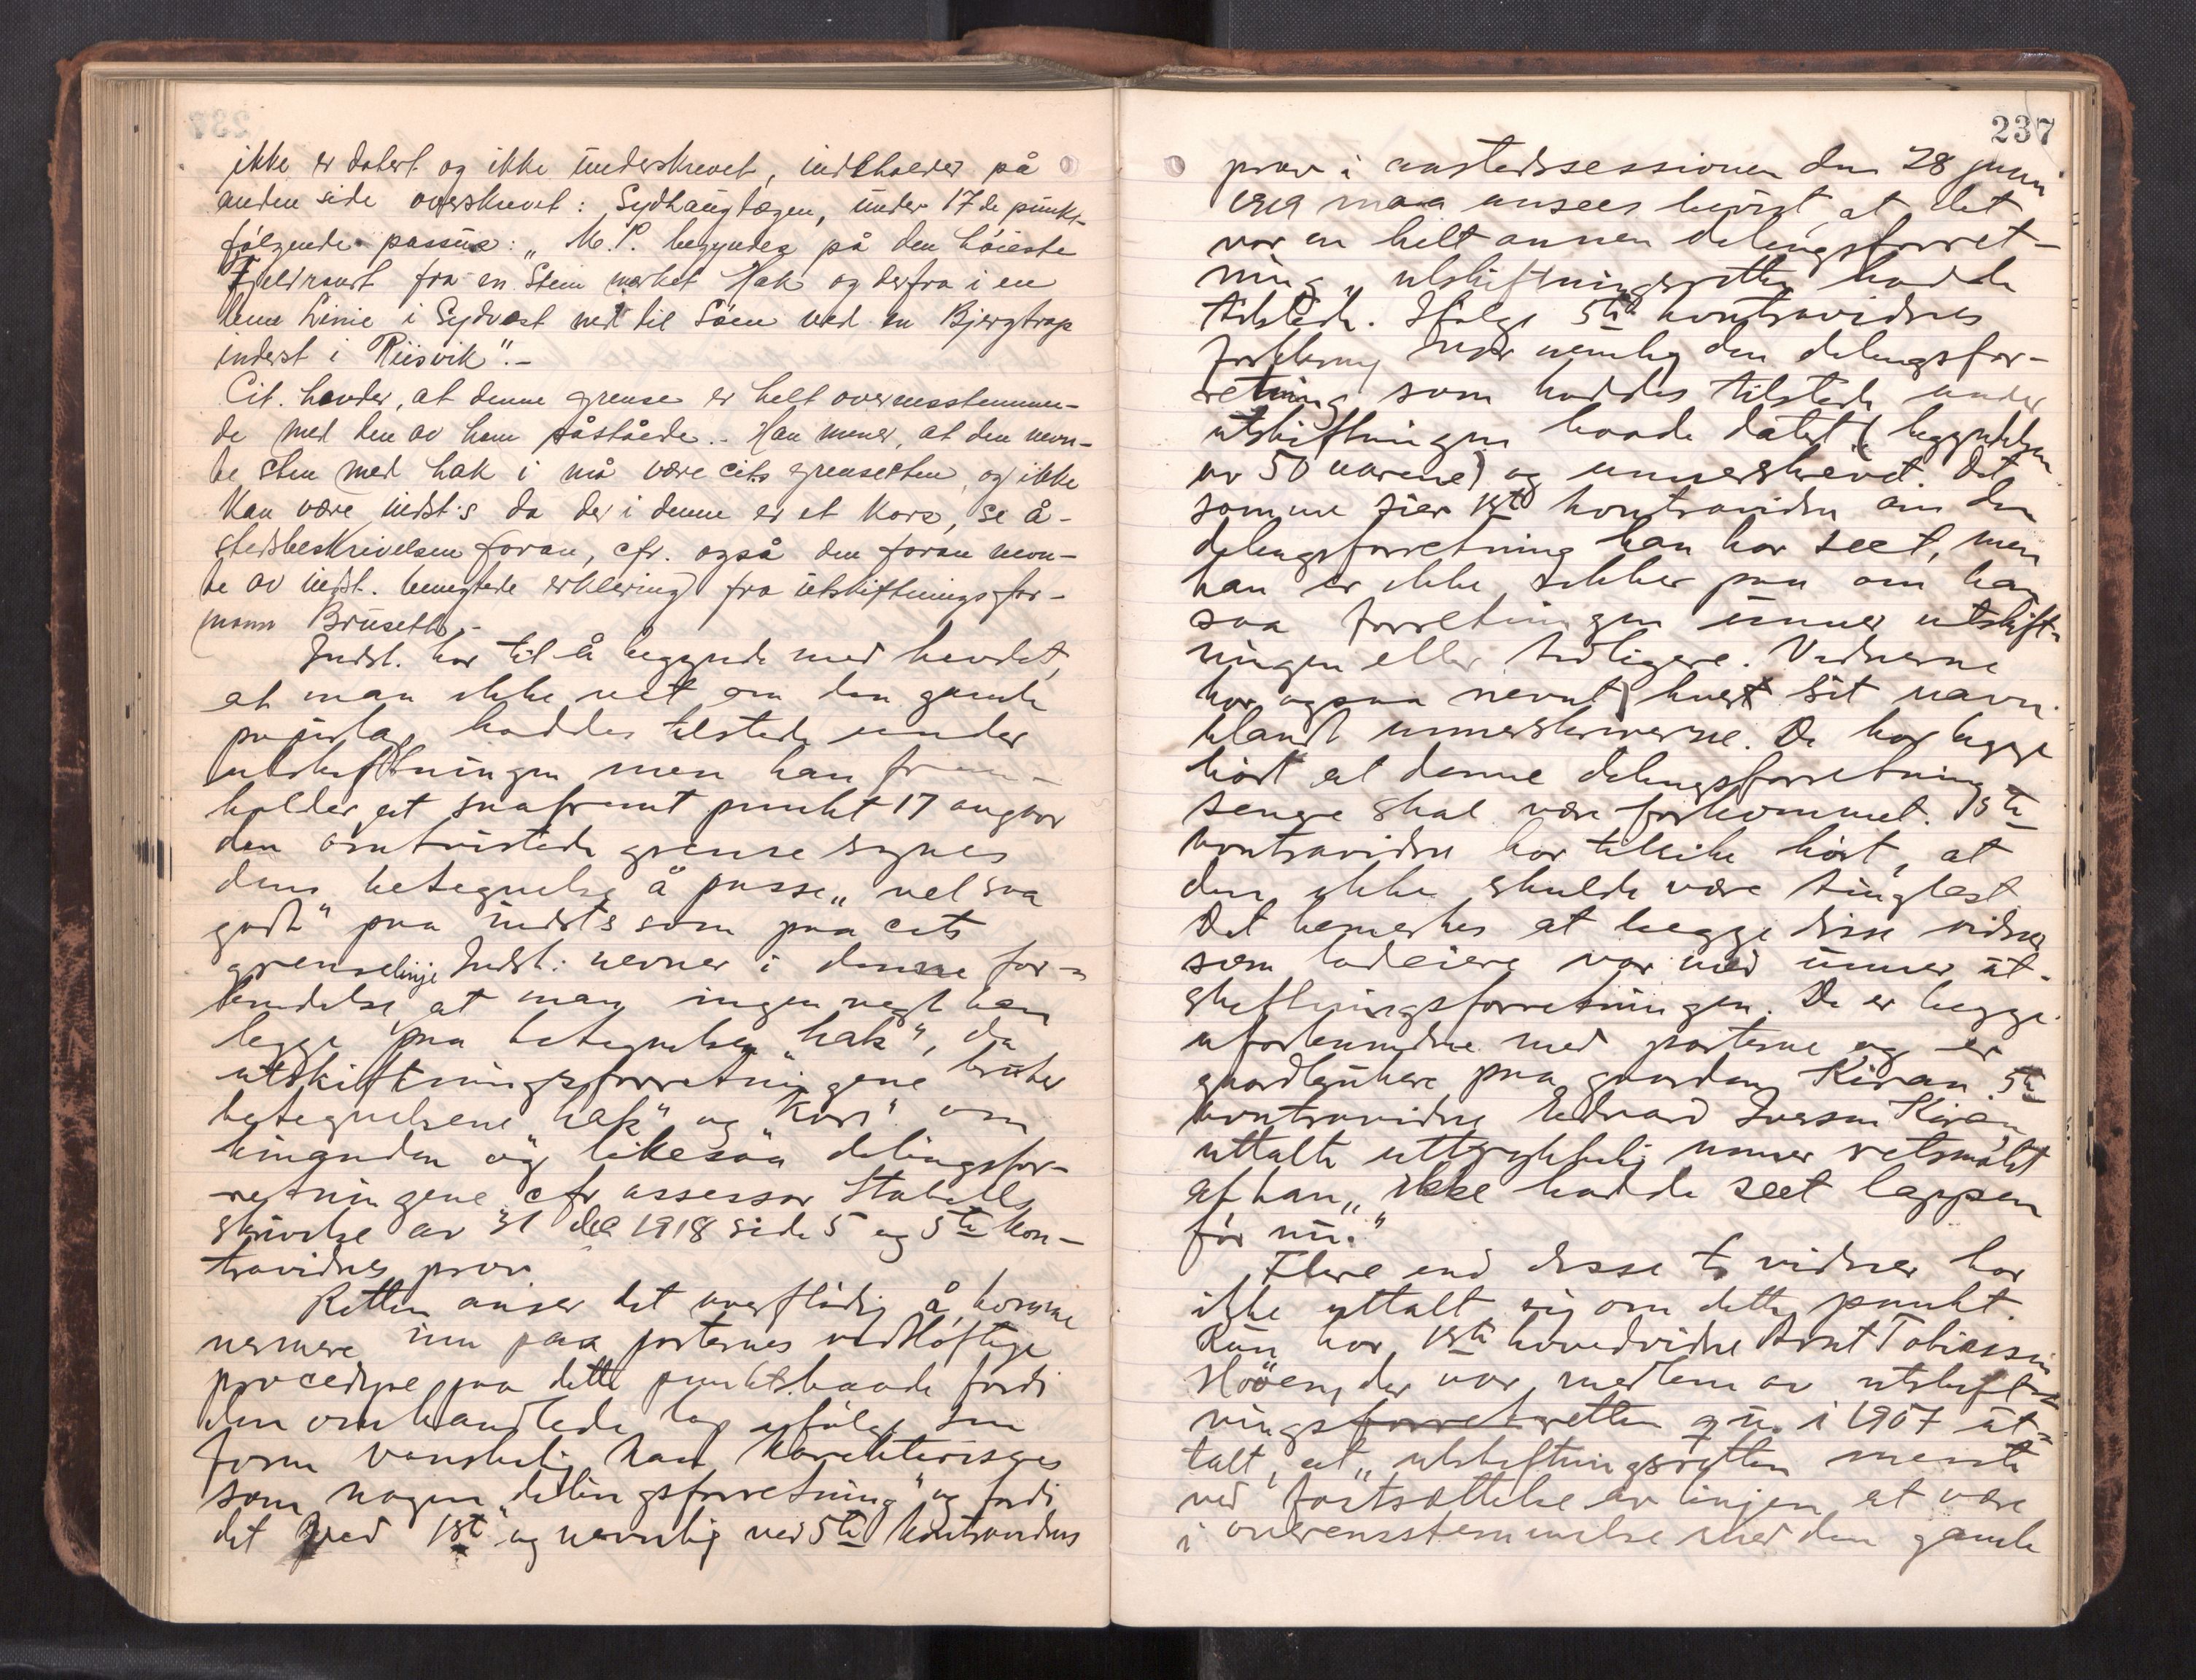 ikke er datert og ikke underskrevet, indeholder på
anden side overskrevet: Sydhaugtægen, under 17de punkt
følgende passus: „M. P. begyndes på den høieste
Fjeldrant fra en Sten merket Hak og derfra i en
linie i Sydvest ned til Söen ved en Bjergtrap
inderst i Riisvik".-
Cit. hevder, at denne grense er helt overensstemmen-
de med den av ham påståede.- Han mener, at den nevn-
te sten med hak i må være cits grensesten, og ikke
kan være indst's da der i denne er et Kors, se å-
stedsbeskrivelsen foran, cfr. også den foran nevn-
te av indst. benegtede erklæring fra utskiftningsfor-
mann Brüseth.-
Indst. har til å begynde med hevdet,
at man ikke vet om den gamle
papirlap haddes tilstede under
utskiftningen men han frem-
holder at saafremt punkt 17 angaar
den omtvistede grense synes
dens betegnelse å passe „vel saa
godt" paa indsts som paa cits
grenselinje Indst: nevner i denne for-
bindelse, at man ingen vegt kan
legge paa betegnelsen „hak", da
utskiftningsforretningene bruker
betegnelsene „hak" og „Kors" om
hinanden og likesaa delingsfor-
retningene cfr assessor Stabells
skrivelse av 31 dec 1918 side 5 og 5te kon-
travidnes prov.
Retten anser det overflødig å komme
nermere inn paa parternes vidløftige
procedyre paa dette punkt baade fordi
den omhandlede lap ifølge sin
form vanskelig kan karakteriseres
som nogen „delingsforretning" og fordi
det ved 1ste og nevnlig ved 5te kontravidnes
237
prov i aastedssessionen den 28 juni
1919 maa ansees bevist, at det
var en helt annen delingsforret-
ning, utskiftningsretten hadde
tilstede. Ifølge 5te kontravidnes
forklaring var nemlig den delingsfor-
retning som haddes tilstede under
utskiftningen baade datert (begyndelsen
av 50 aarene) og underskrevet. Det
samme sier 1ste kontravidne om den
delingsforretning han har seet, men
han er ikke sikker paa om han
saa forretningen under utskift-
ningen eller tidligere. Vidnerne
har ogsaa nevnt hvert sit navn
blandt underskriverne. De har begge
hört at denne delingsforretning
senere skal være forkommet. 1ste
kontravidne har tillike hört, at
den ikke skulde være tinglest.
Det bemerkes at begge disse vidner
som lodeiere var med under ut-
skiftningsforretningen. De er begge
ubeslektede med parterne og er
gaardbrukere paa gaarden Kiran. 5te
kontravidne Edvard Iversen Kiran,
uttalte uttrykkelig under retsmötet
at han „ikke hadde seet lappen
för nu."
Flere end disse to vidner har
ikke uttalt sig om dette punkt.
Kun har 1ste hovedvidne Arnt Tobiassen
der var medlem av utskift-
ningsretten i 1907 ut-
talt, at „utskiftningsretten mente
ved fortsættelse av linjen at være
i overensstemmelse med den gamle